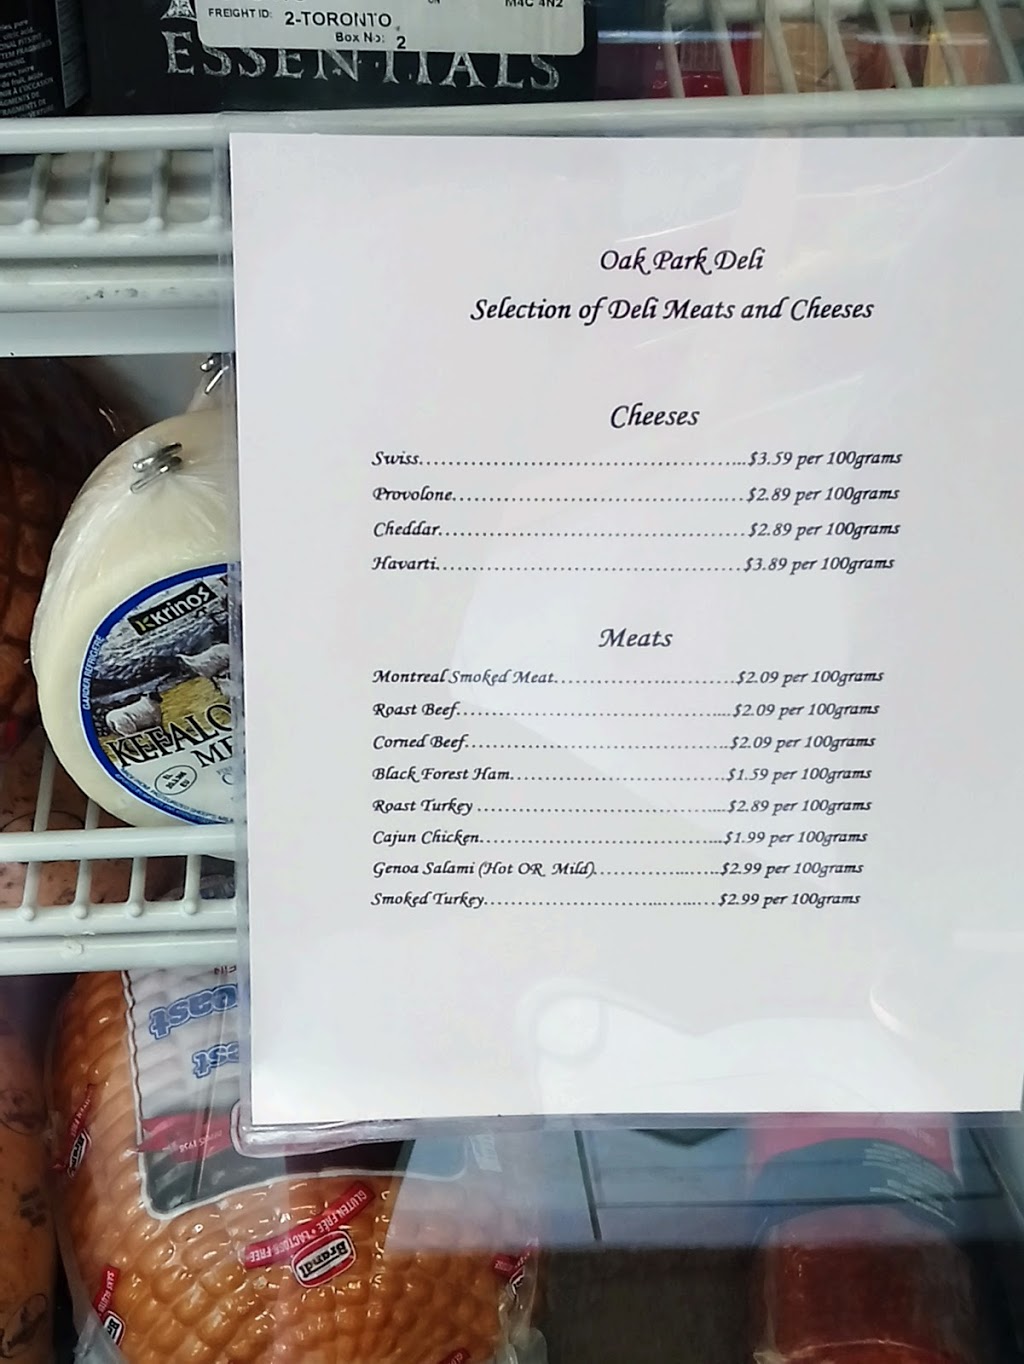 M4C 4N2
FREIGHT ID: 2-TORONTO
Box No: 2
ESSENTIALS
Oak Park Deli
Selection of Deli Meats and Cheeses
Cheeses
Swiss.................................................$3.59 per 100grams
Provolone.............................................$2.89 per 100grams
Cheddar...............................................$2.89 per 100grams
Havarti...............................................$3.89 per 100grams
Meats
Montreal Smoked Meat..............................$2.09 per 100grams
Roast Beef............................................$2.09 per 100grams
Corned Beef...........................................$2.09 per 100grams
Black Forest Ham....................................$1.59 per 100grams
Roast Turkey .........................................$2.89 per 100grams
Cajun Chicken.........................................$1.99 per 100grams
Genoa Salami (Hot OR Mild).......................$2.99 per 100grams
Smoked Turkey.......................................$2.99 per 100grams
Krinos
GARDER REFRIGERE
KEFALO
GLUTEN FREE • LACTOSE FREE
Brandt